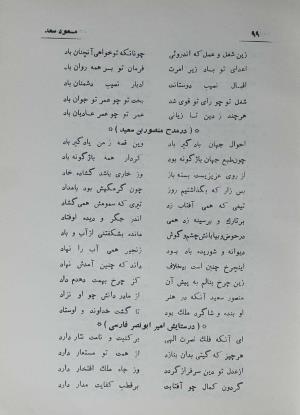 ۹۹ مسعود سعد
زین شغل و عمل که اندروئی چونانکه توخواهی آنچنان باد
اعدای تو باد زیر امرت فرمان تو بر همه روان باد
اقبال نصیب دوستانت ادبار نصیب دشمنان باد
شغل تو چو رای تو قوی شد بخت تو چو عمر تو جوان باد
هرچند ز دین تا زیانی عمر تو چو عمر عادیان باد
* ( درمدح منصوربن سعید ) *
احوال جهان بادگیر باد وین قصه ز من یادگیر باد
چون طبع جهان باژگونه بود کردار همه باژگونه باد
از روی عزیزیست بسته باز وز خاری باشد گشاده خاد
بس زار که بگذاشتیم روز چون گرمگهش بود بامداد
تیغی که همی آفتاب زد تیری که سمومش همی گشاد
برتارک و برسینه زد همی اندر جگر و دیده اوفتاد
درحوض و بیابانش چشم و گوش مانده بشگفتی از آب و باد
دیوانه و شوریده باد بود زنجیر همی آب را نهاد
اینچرخ چنین است بیخلاف داند که چنین آمدش نهاد
زین چرخ بنالم به پیش آن کز چرخ بهمت دهدم داد
منصور سعید آنکه در هنر از مادر دانش چو او نزاد
او بنده و شاگرد ملک بود تا گشت خداوند و اوستاد
* ( درستایش امیر ابونصر فارسی ) *
ای آنکه فلک نصرت الهی برکنیت و نامت نثار دارد
هرچیز که گیتی بدان بنازد از همت تو مستعار دارد
از عدل تو دین سرفراز گردد وز جاه تو ملک افتخار دارد
گردون کمال چو آفتابت برقطب کفایت مدار دارد